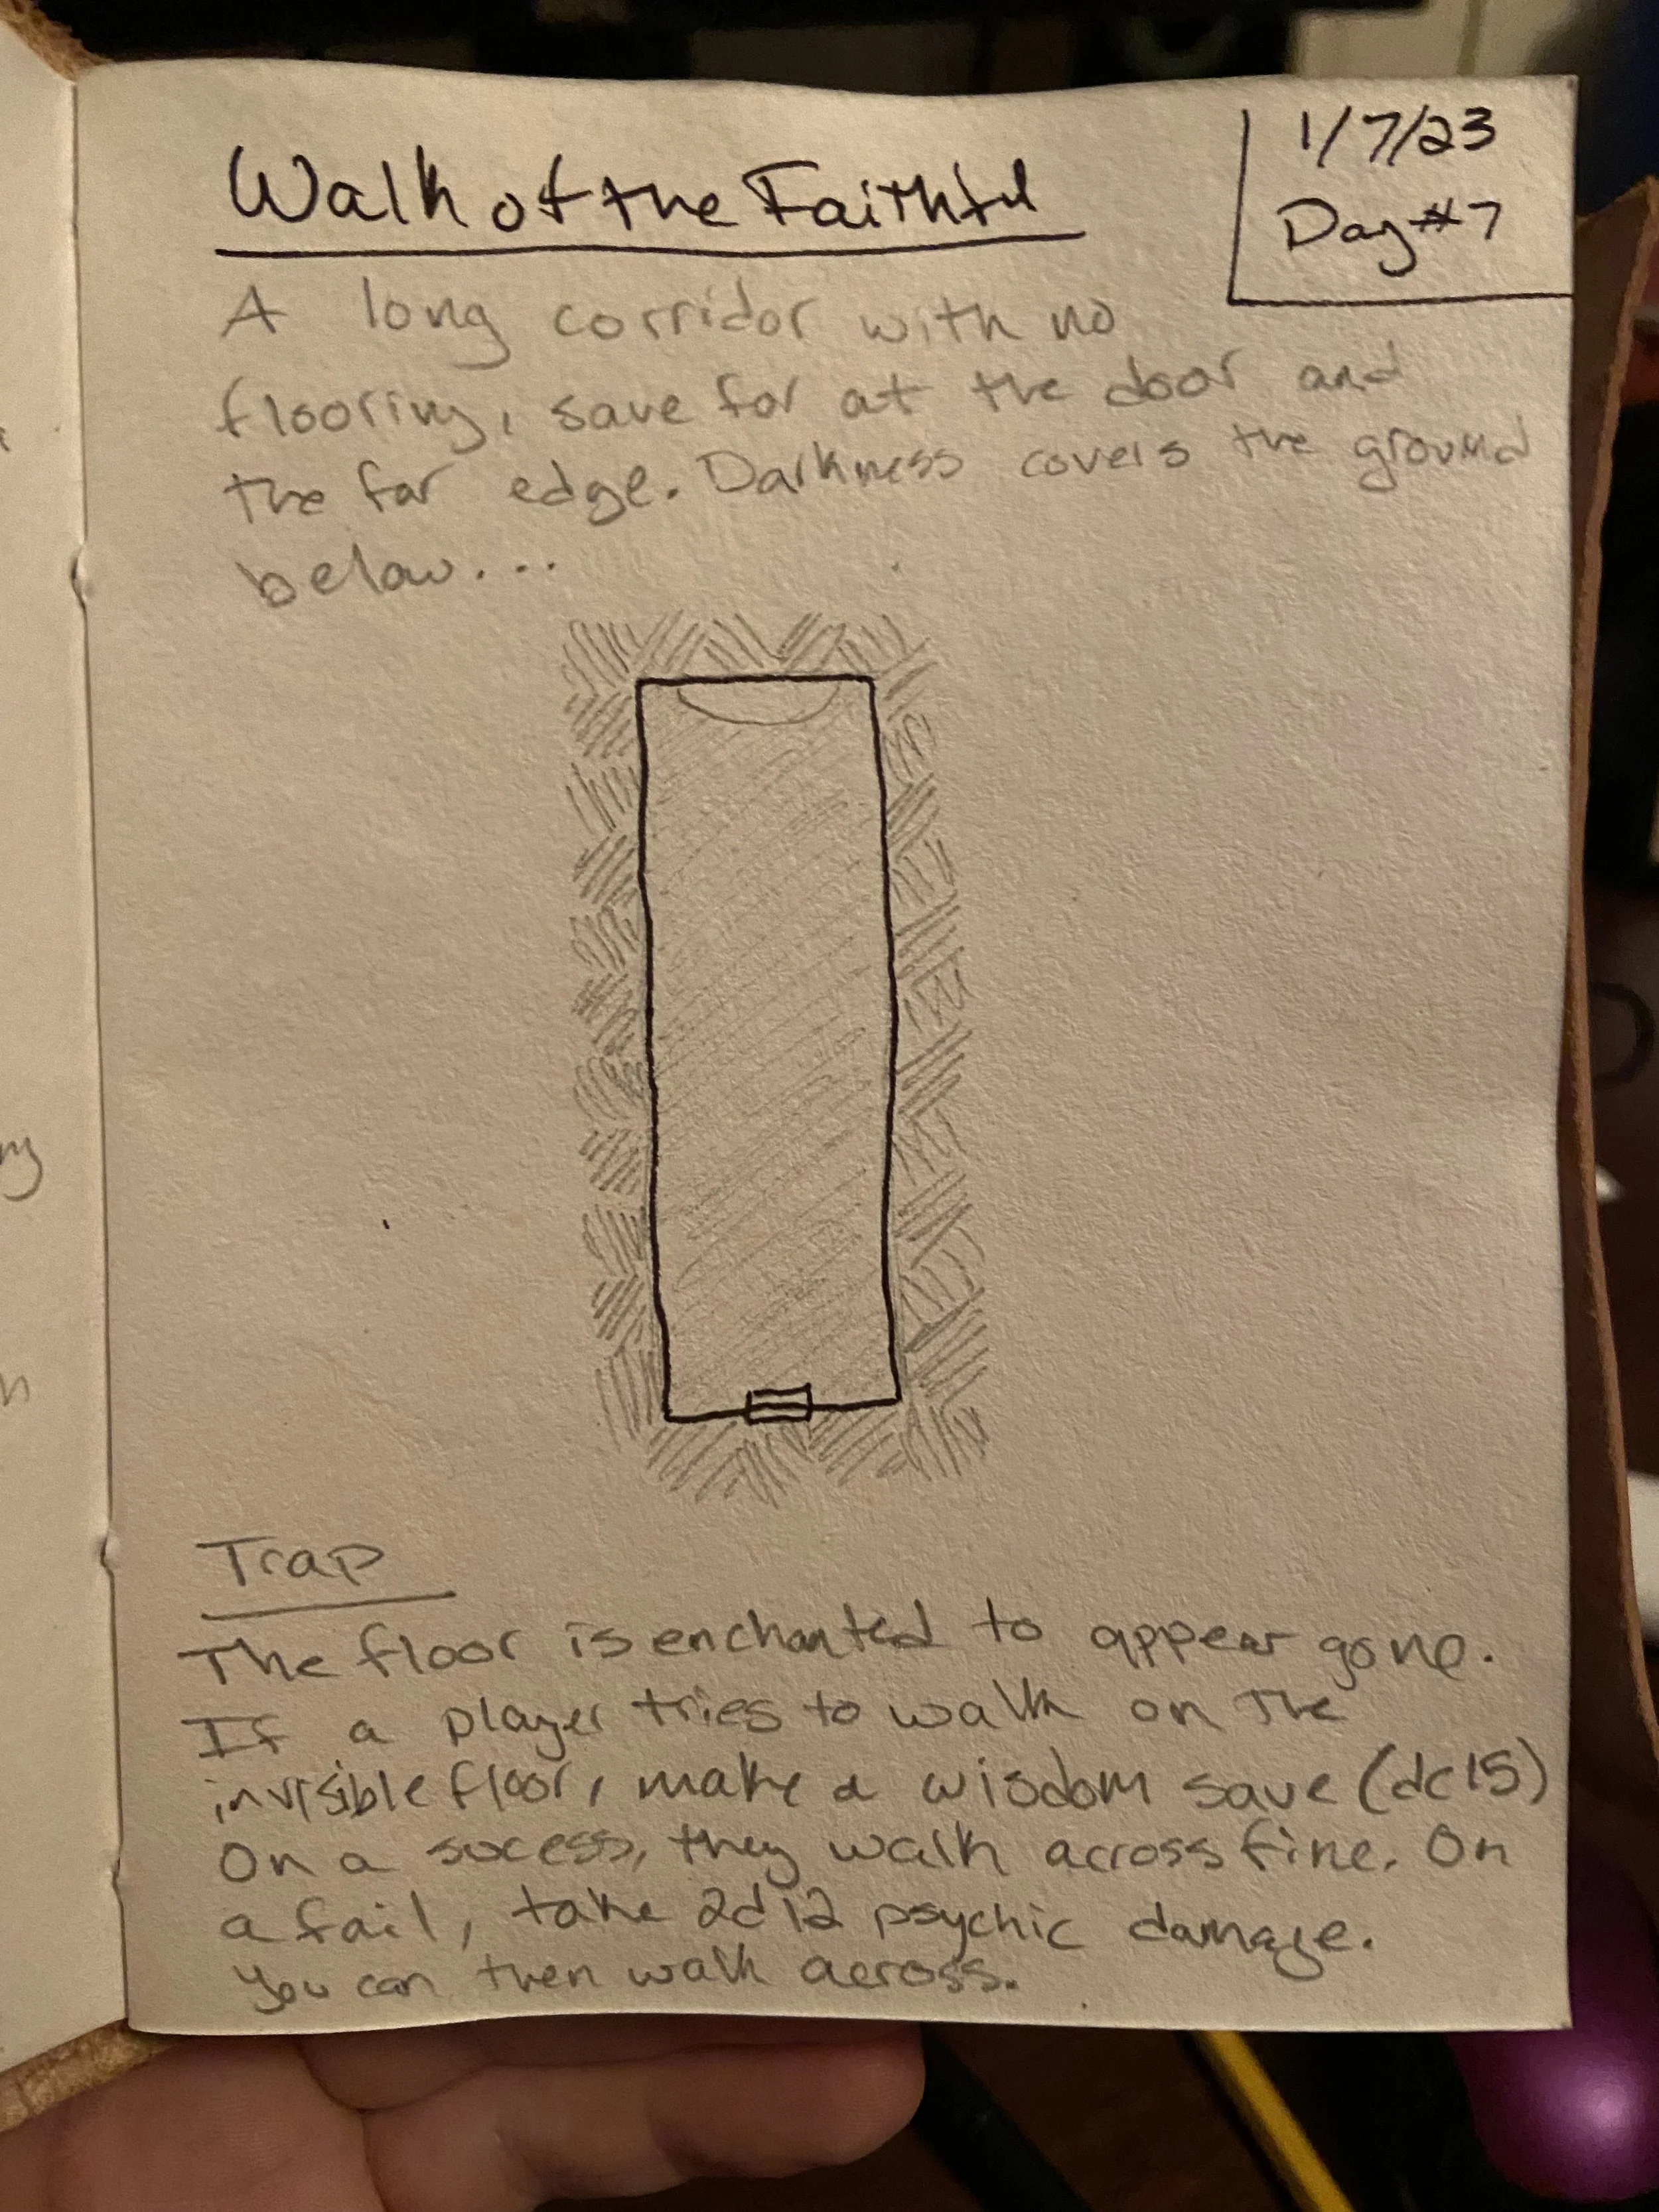 Walk of the Faithful
1/7/23
Day #7
A long corridor with no
flooring, save for at the door and
the far edge. Darkness covers the ground
below...
Trap
The floor is enchanted to appear gone.
If a player tries to walk on the
invisible floor, make a wisdom save (dc15)
On a sucess, they walk across fine. On
a fail, take 2d12 psychic damage.
You can then walk across.